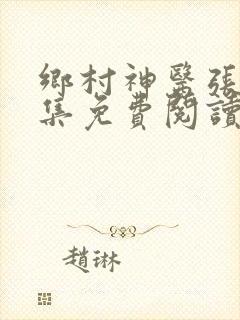 鄉村神醫張
集免費閱讀
趙琳